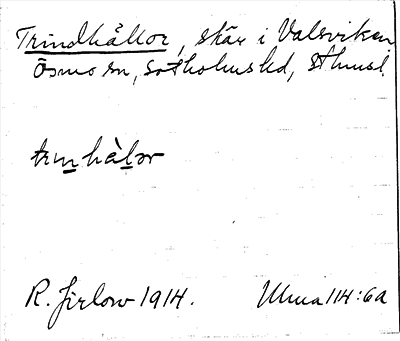 Trindhållor, skär i Valsviken
Ösmo sn, Sotholms hd, Sthms l.
trinhålor
R. Jirlow 1914. Ulma 114:6a